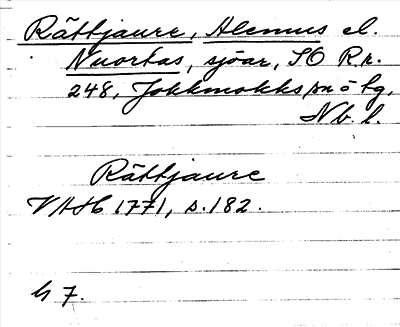 Rättjaure, Alemus el.
Nuortas, sjöar, SO R.r.
248, Jokkmokks sn o tg,
Nb. l.
Rättjaure
VAH 1771, s. 182.
h 7.